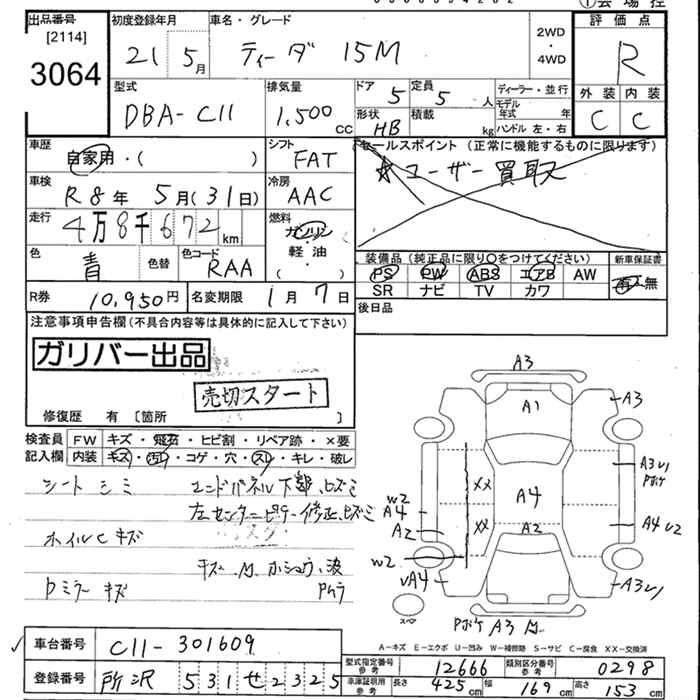 ①会場控
出品番号 初度登録年月 車名・グレード 2WD・4WD 評価点
[2114]
3064 21 5月 ティーダ 15M R
型式 排気量 ドア 定員 ディーラー・並行 外装 内装
DBA-C11 1,500cc 5 5人 モデル年式 年 C C
形状 HB 積載 kg ハンドル 左・右
車歴 シフト セールスポイント (正常に機能するものに限ります)
自家用・( ) FAT ☆ユーザー買取
車検 冷房
R8年 5月(31日) AAC
走行 燃料
4万8千672km ガソリン
軽油
( )
色 色替 色コード 装備品(純正品に限り○をつけてください) 新車保証書
青 RAA PS PW ABS エアB AW 有・無
SR ナビ TV カワ
R券 10,950円 名変期限 1月7日 後日品
注意事項申告欄(不具合内容等は具体的に記入して下さい)
ガリバー出品
売切スタート
修復歴 有 [箇所 ]
検査員 FW キズ・飛石・ヒビ割・リペア跡・×要
記入欄 内装 キズ・汚れ・コゲ・穴・スレ・キレ・破レ
シートシミ エンドパネル下部ヒズミ
左センターピラー修正ヒズミ
ホイルCキズ
キズ
ミラーキズ
A3
A1 A3
XX A4
W2
A4
XX A2
A2 A4 U2
W2
A4
A3
スペア
A3
A-キズ E-エクボ U-凹み W-補修跡 S-サビ C-腐食 XX-交換済
車台番号 C11-301609
型式指定番号 参考 12666 類別区分番号 参考 0298
登録番号 所沢 531 せ 2325
車庫証明用 参考 長さ 425cm 幅 169cm 高さ 153cm